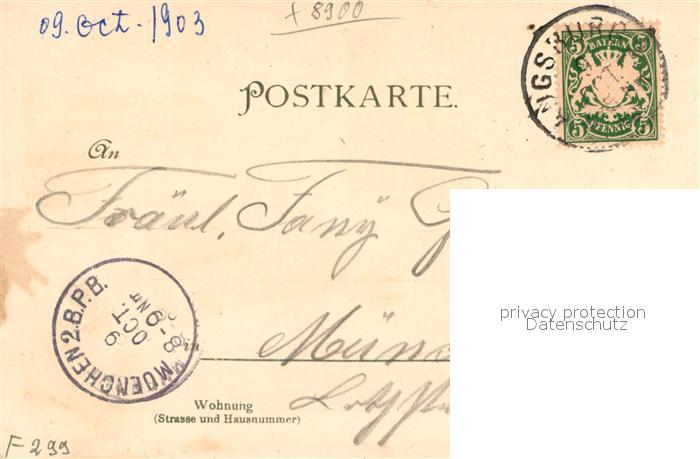 09. Oct. 1903
+ 8900
AUGSBURG
9
OCT.
5 BAYERN 5
5 PFENNIG 5
POSTKARTE.
An
Fräul. Fany
privacy protection
Datenschutz
MUENCHEN 2.B.P.B.
9
OCT.
8-9 NM
in
Mün
Wohnung
(Strasse und Hausnummer)
F 299